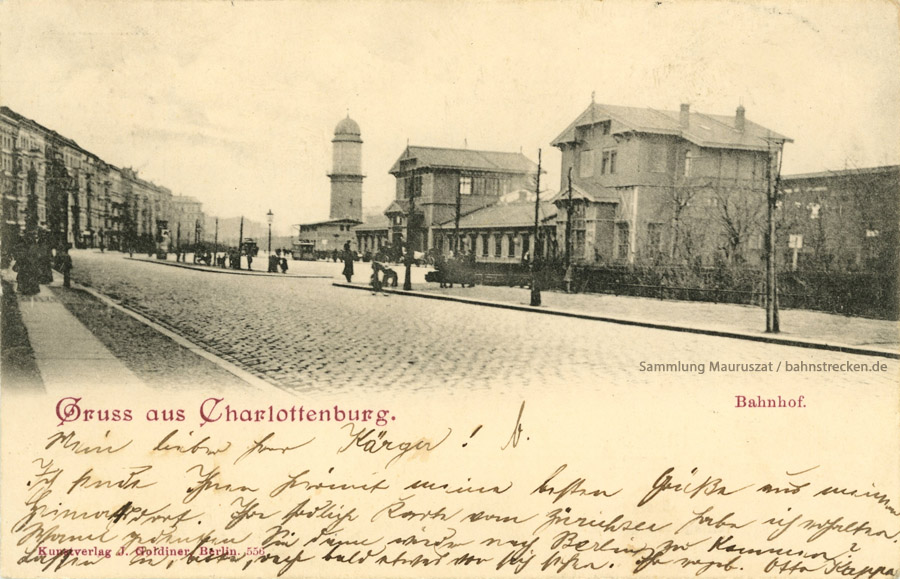 Sammlung Mauruszat / bahnstrecken.de
Gruss aus Charlottenburg.
Bahnhof.
Mein lieber Herr Kärger!
Ich sende Ihnen hiermit meine besten Grüße aus meinem
Heimatdorf. Ihre Karte vom Zürichsee habe ich erhalten.
Wann Sie denn wieder nach Berlin zu kommen?
Lassen Sie, bitte, doch bald etwas von sich hören. Otto
Kunstverlag J. Goldiner, Berlin. 556